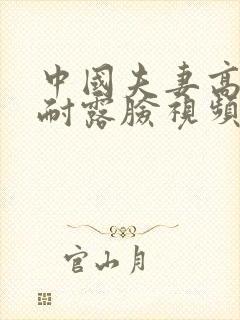 中國夫妻高
耐露臉視頻
官山月